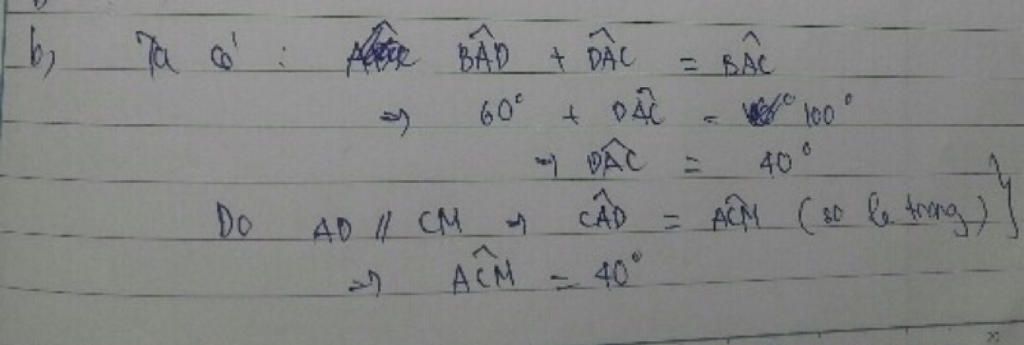 b, Ta có : BÂD + DÂC = BÂC
⇒ 60° + DÂC = 100°
⇒ DÂC = 40°
Do AD // CM ⇒ CÂD = AĈM (so le trong) }
⇒ AĈM = 40°